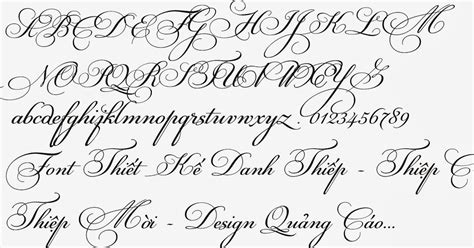 ABCDEFG HIJKLM
NOPQRSTUVWXYZ
abcdefghijklmnopqrstuvwxyz : 0123456789
Font Thiết Kế Danh Thiếp - Thiệp C
Thiệp Mời - Design Quảng Cáo...